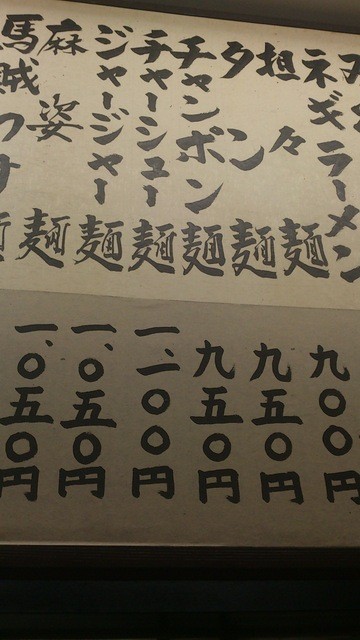 ネギラーメン
担々麺
タン麺
チャンポン麺
チャーシュー麺
ジャージャー麺
麻姿麺
馬賊つ
九〇〇円
九五〇円
九五〇円
一、一〇〇円
一、〇五〇円
一、〇五〇円